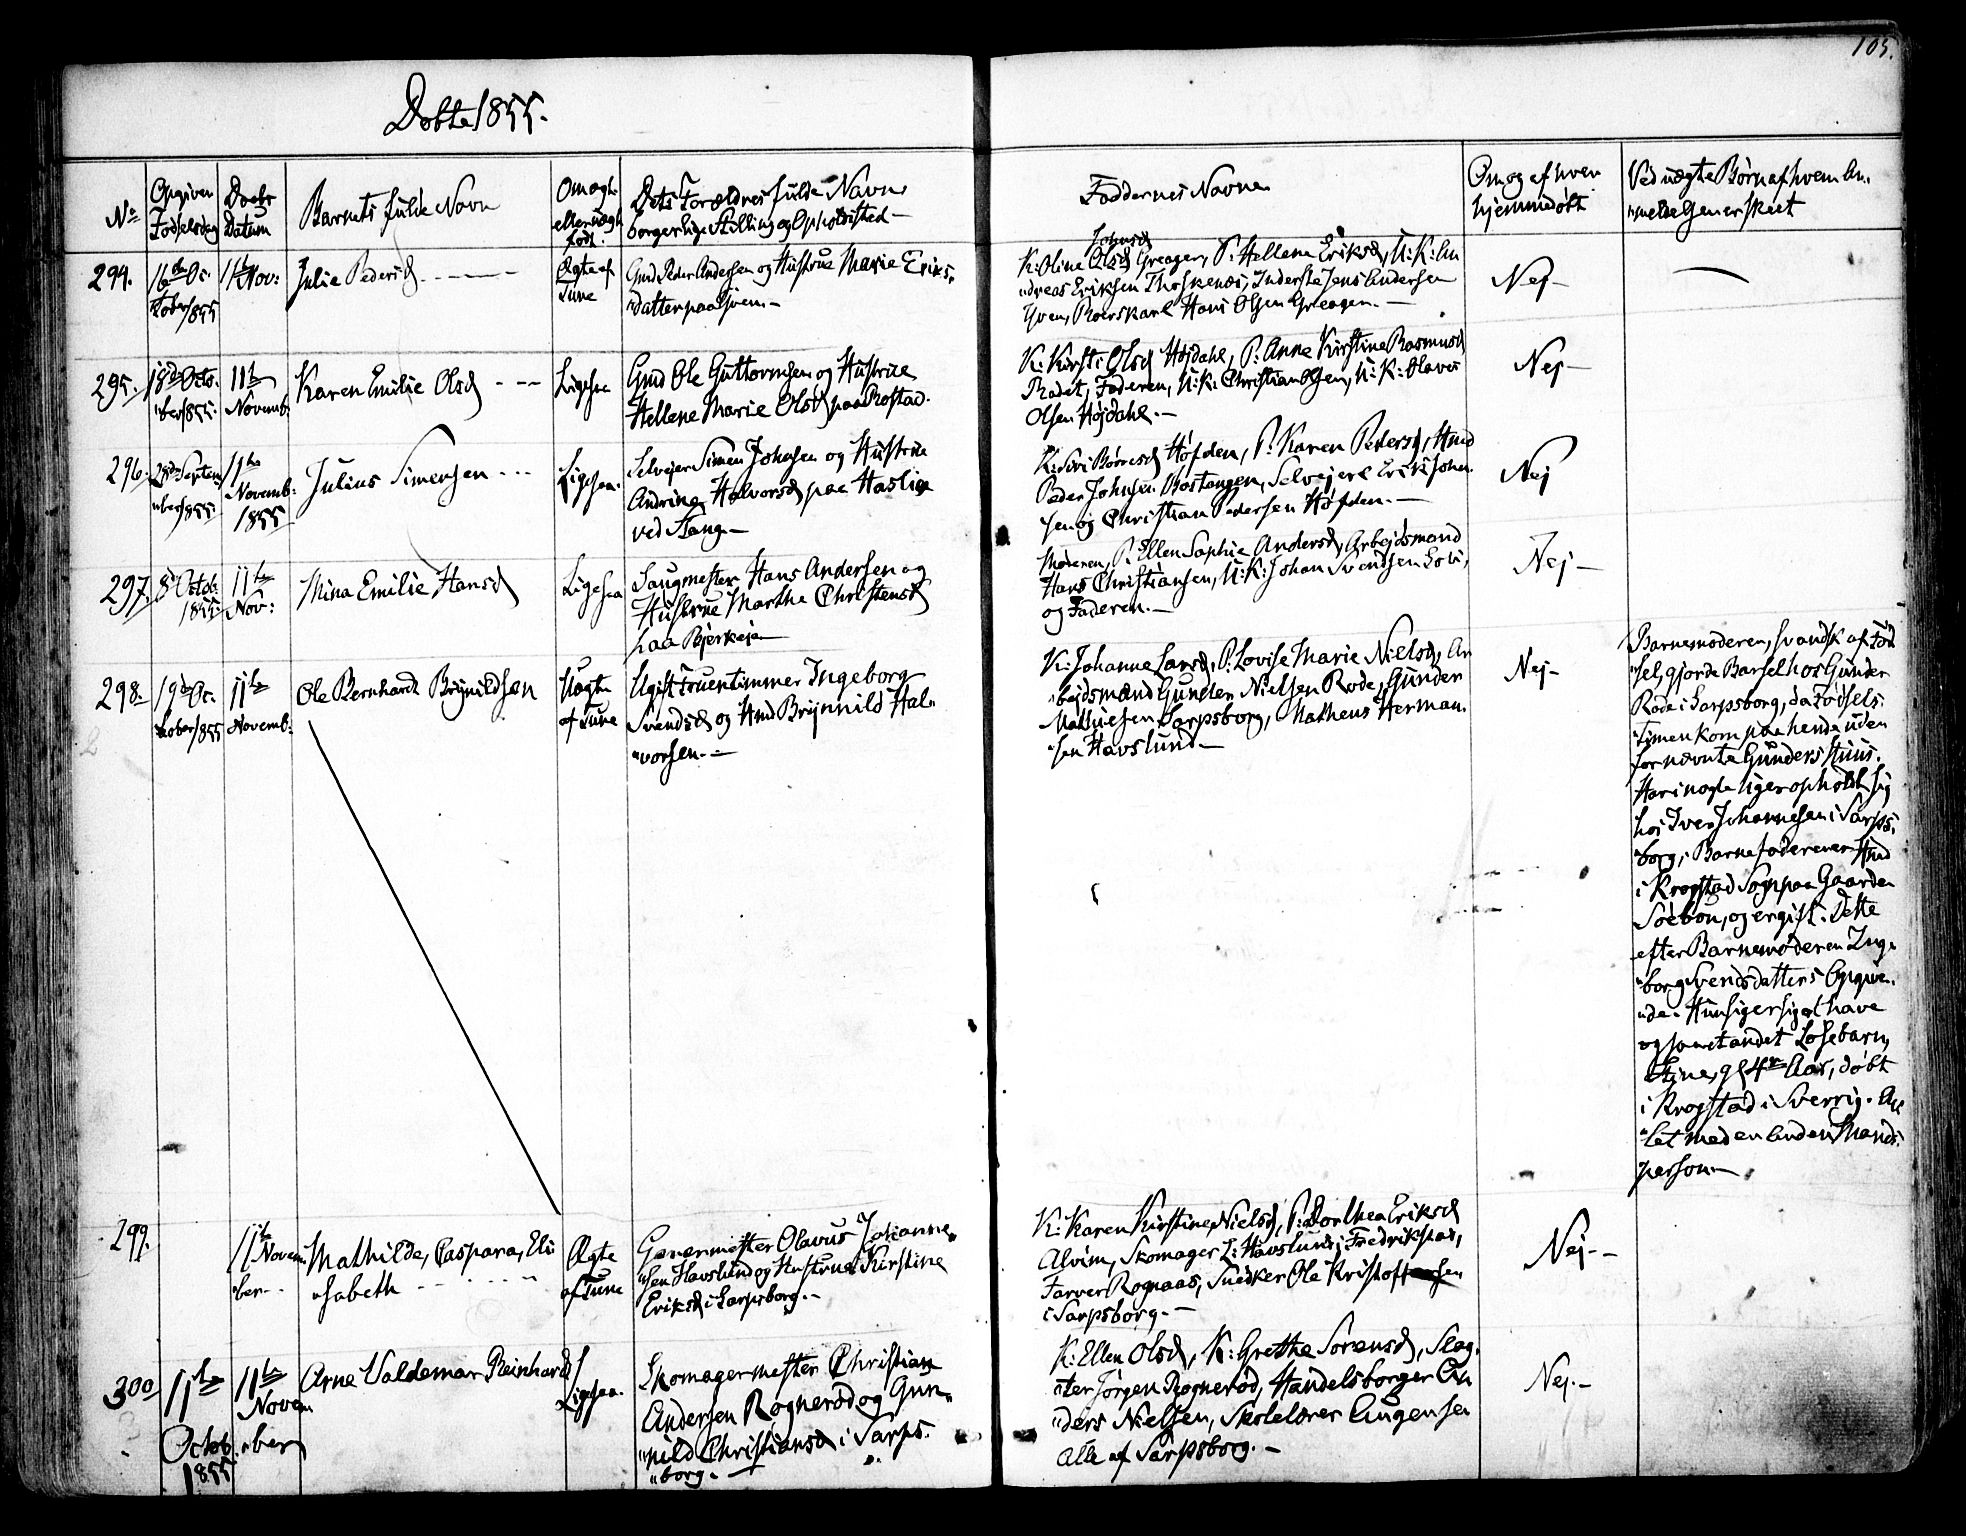 105.
Døbte 1855.
No
Opgiven Fødselsdag
Daabs Datum
Barnets fulde Navn
Om ægte eller uægte født.
Dets Forældres fulde Navne
borgerlige Stilling og Opholdssted —
Faddernes Navne
Om og af hvem hjemmedøbt
Ved uægte Børn af hvem An-
"meldelsen er skeet
294.
16de Oc-
tober 1855
11te Nov:
Julie Pedersd. - - - -
Ægte af
Tune
Gmd Peder Andersen og Hustrue Marie Eriks-
"datter paa Hven. —
Johnsd
K: Oline Olsd Greager, P: Hellene Eriksd, U: K: An
"dreas Eriksen Thoskenæs, Inderste Jens Andersen
Hven, Roerskarl Hans Olsen Greagen. —
Nej —
295.
18de Octo-
"ber 1855.
11te
Novemb:
Karen Emilie Olsd - - -
Ligesaa
Gmd Ole Guttormsen og Hustrue
Hellene Marie Olsd paa Rostad.
K: Kirsti Olsd Højdahl, P: Anne Kirstine Rasmusd
Rødet, Faderen, U: K: Christian Olsen, U: K: Olaves
Olsen Højdahl. —
Nej —
296.
28de Septem
"ber 1855
11te
Novemb:
1855
Julius Simensen - - -
Ligesaa.
Selvejer Simen Johnsen og Hustrue
Andrine Halvorsd paa Haslie
ved Stang. —
K: Siri Børresd Høfden, P: Karen Pedersd, Gmd
Peder Johnsen Bostangen, Selvejere Erik Johan-
sen og Christian Pedersen Høfden. —
Nej
297.
8de Octob.
1855.
11te
Nov:
Mina Emilie Hansd
Ligesaa
Saugmester Hans Andersen og
Hustrue Marthe Christensd
paa Bjerkeie
Moderen, P: Ellen Sophie Andersd, Arbejdsmand
Hans Christiansen, U: K: Johan Svendsen
og Faderen. —
Nej —
298.
19de Oc-
tober 1855
11te
Novemb:
Ole Bernhardt Brynildsen
Uægte
af Tune
Ugift Fruentimmer Ingeborg
Svendsd og Gmd Brynnild Hal-
"vorsen. —
K: Johanne Larsd, P: Lovise Marie Nielsd, Ar
"bejdsmand Gunder Nielsen Rode, Gunder
Mathiesen Sarpsborg, Matheus Herman-
"sen Havslund —
Nej —
Barnemoderen, svandsk af Fød
"sel, gjorde Barsel hos Gunder
Rode i Sarpsborg, da Fødsels-
Timen kom paa hende uden
fornævnte Gunders Huus.
Har i nogle Uger opholdt sig
hos Iver Johannesen i Sarps-
"borg; Barnefaderen er Gmd
i Krogstad Sogn paa Gaarden
Söebön, og er gift. Dette
efter Barnemoderen Inge-
"borg Svendsdatters Opgiven-
"de. Hun siger sig at have
ogsaa et andet Løsebarn,
Stine, gl 4re Aar, døbt
i Krogstad i Sverrig. Av-
"let med en anden Mands-
person. —
299.
11te
Novem-
"ber - -
Mathilde, Caspara, Eli
"sabeth - - - - -
Ægte
af Tune
Garvermester Olavus Johanne-
"sen Havslund og Hustrue Kirstine
Eriksd i Sarpsborg. —
K: Karen Kirstine Nielsd, P: Dorthea Eriksd
Alvim, Skomager L: Havslund, Fredrikstad,
Farver Rognaas, Snedker Ole Kristoffersen
i Sarpsborg. —
Nej - -
300
11te
Octob.
1855
11te
Novem
"ber
Arne Valdemar Reinhard
Ligesaa.
Skomagermester Christian
Andersen Rognerød og Gun-
"nild Christiansd i Sarps-
"borg. —
K: Ellen Olsd, K: Grethe Sørensd, Slag-
"ter Jørgen Rognerød, Handelsborger An
"ders Nielsen, Skolelærer Augensen
Alle af Sarpsborg. —
Nej. —